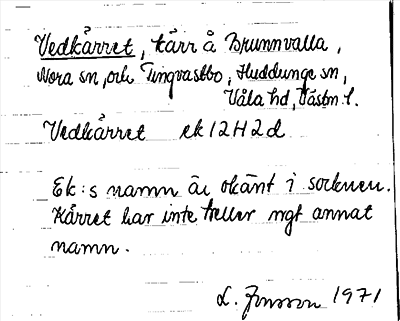 Vedkärret, kärr å Brunnvalla,
Nora sn, och Tingvastbo, Huddunge sn,
Våla hd, Västm l.
Vedkärret ek 12H2d
Ek:s namn är okänt i socknen.
Kärret har inte heller ngt annat
namn.
L. Jonsson 1971